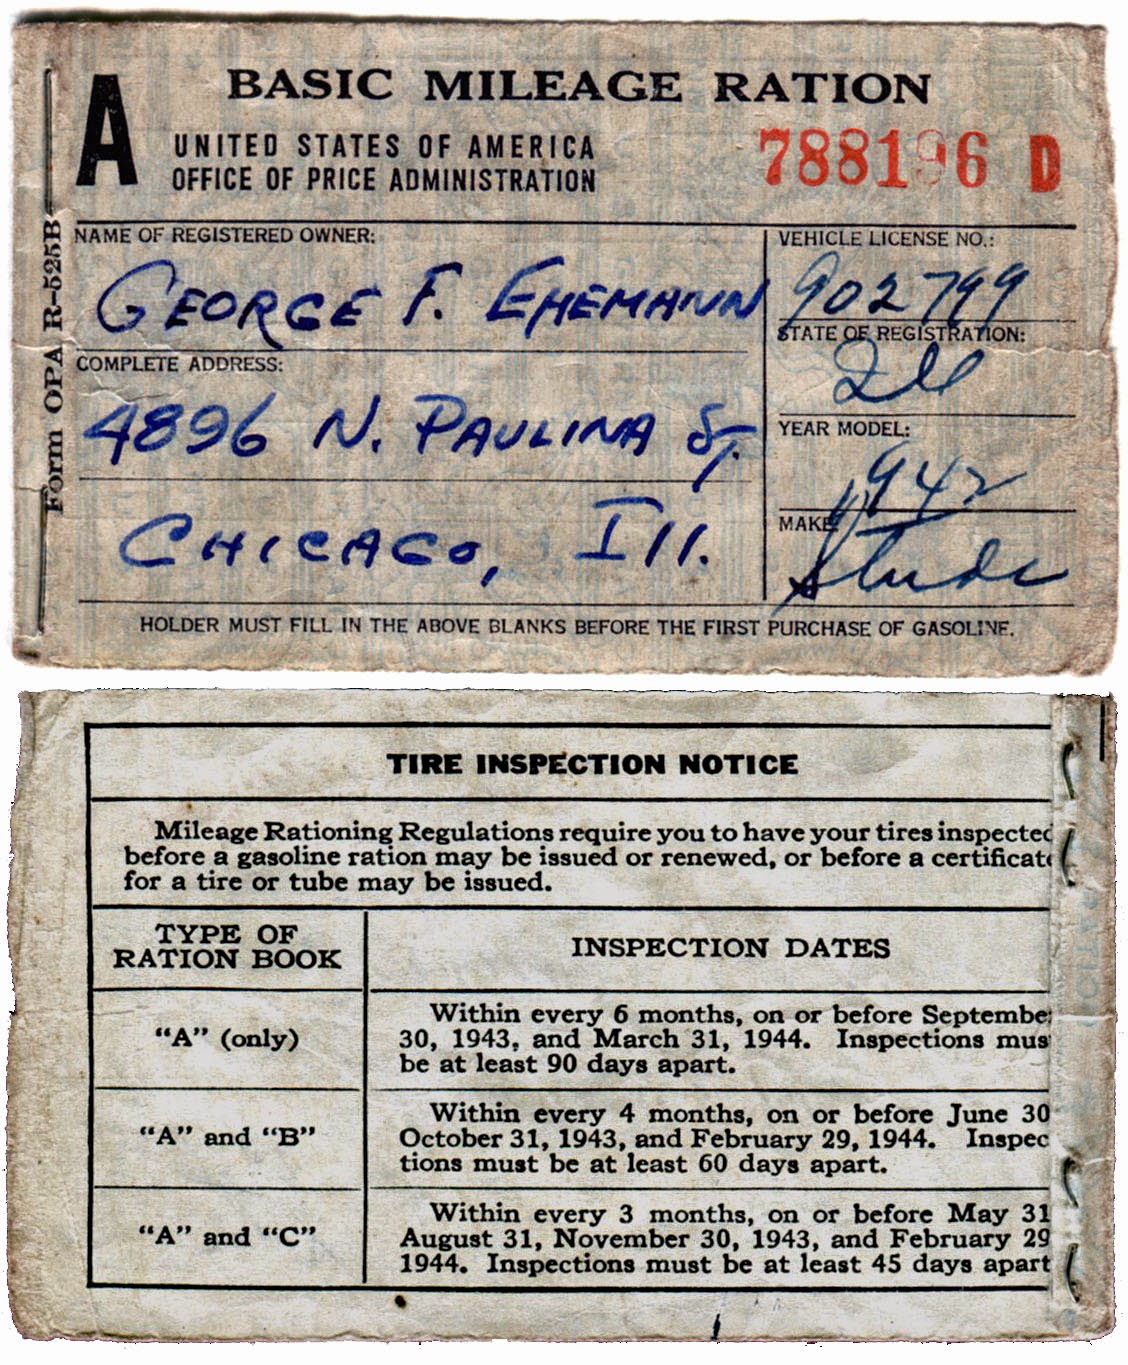 A
BASIC MILEAGE RATION
UNITED STATES OF AMERICA
OFFICE OF PRICE ADMINISTRATION
788196 D
Form OPA R-525B
NAME OF REGISTERED OWNER:
GEORGE F. EHEMANN
COMPLETE ADDRESS:
4896 N. PAULINA ST.
CHICAGO, Ill.
VEHICLE LICENSE NO.:
902799
STATE OF REGISTRATION:
Ill
YEAR MODEL:
1942
MAKE
Stude
HOLDER MUST FILL IN THE ABOVE BLANKS BEFORE THE FIRST PURCHASE OF GASOLINE.
TIRE INSPECTION NOTICE
Mileage Rationing Regulations require you to have your tires inspected
before a gasoline ration may be issued or renewed, or before a certificate
for a tire or tube may be issued.
TYPE OF
RATION BOOK
INSPECTION DATES
"A" (only)
Within every 6 months, on or before Septembe
30, 1943, and March 31, 1944. Inspections mus
be at least 90 days apart.
"A" and "B"
Within every 4 months, on or before June 30
October 31, 1943, and February 29, 1944. Inspec
tions must be at least 60 days apart.
"A" and "C"
Within every 3 months, on or before May 31
August 31, November 30, 1943, and February 29
1944. Inspections must be at least 45 days apart